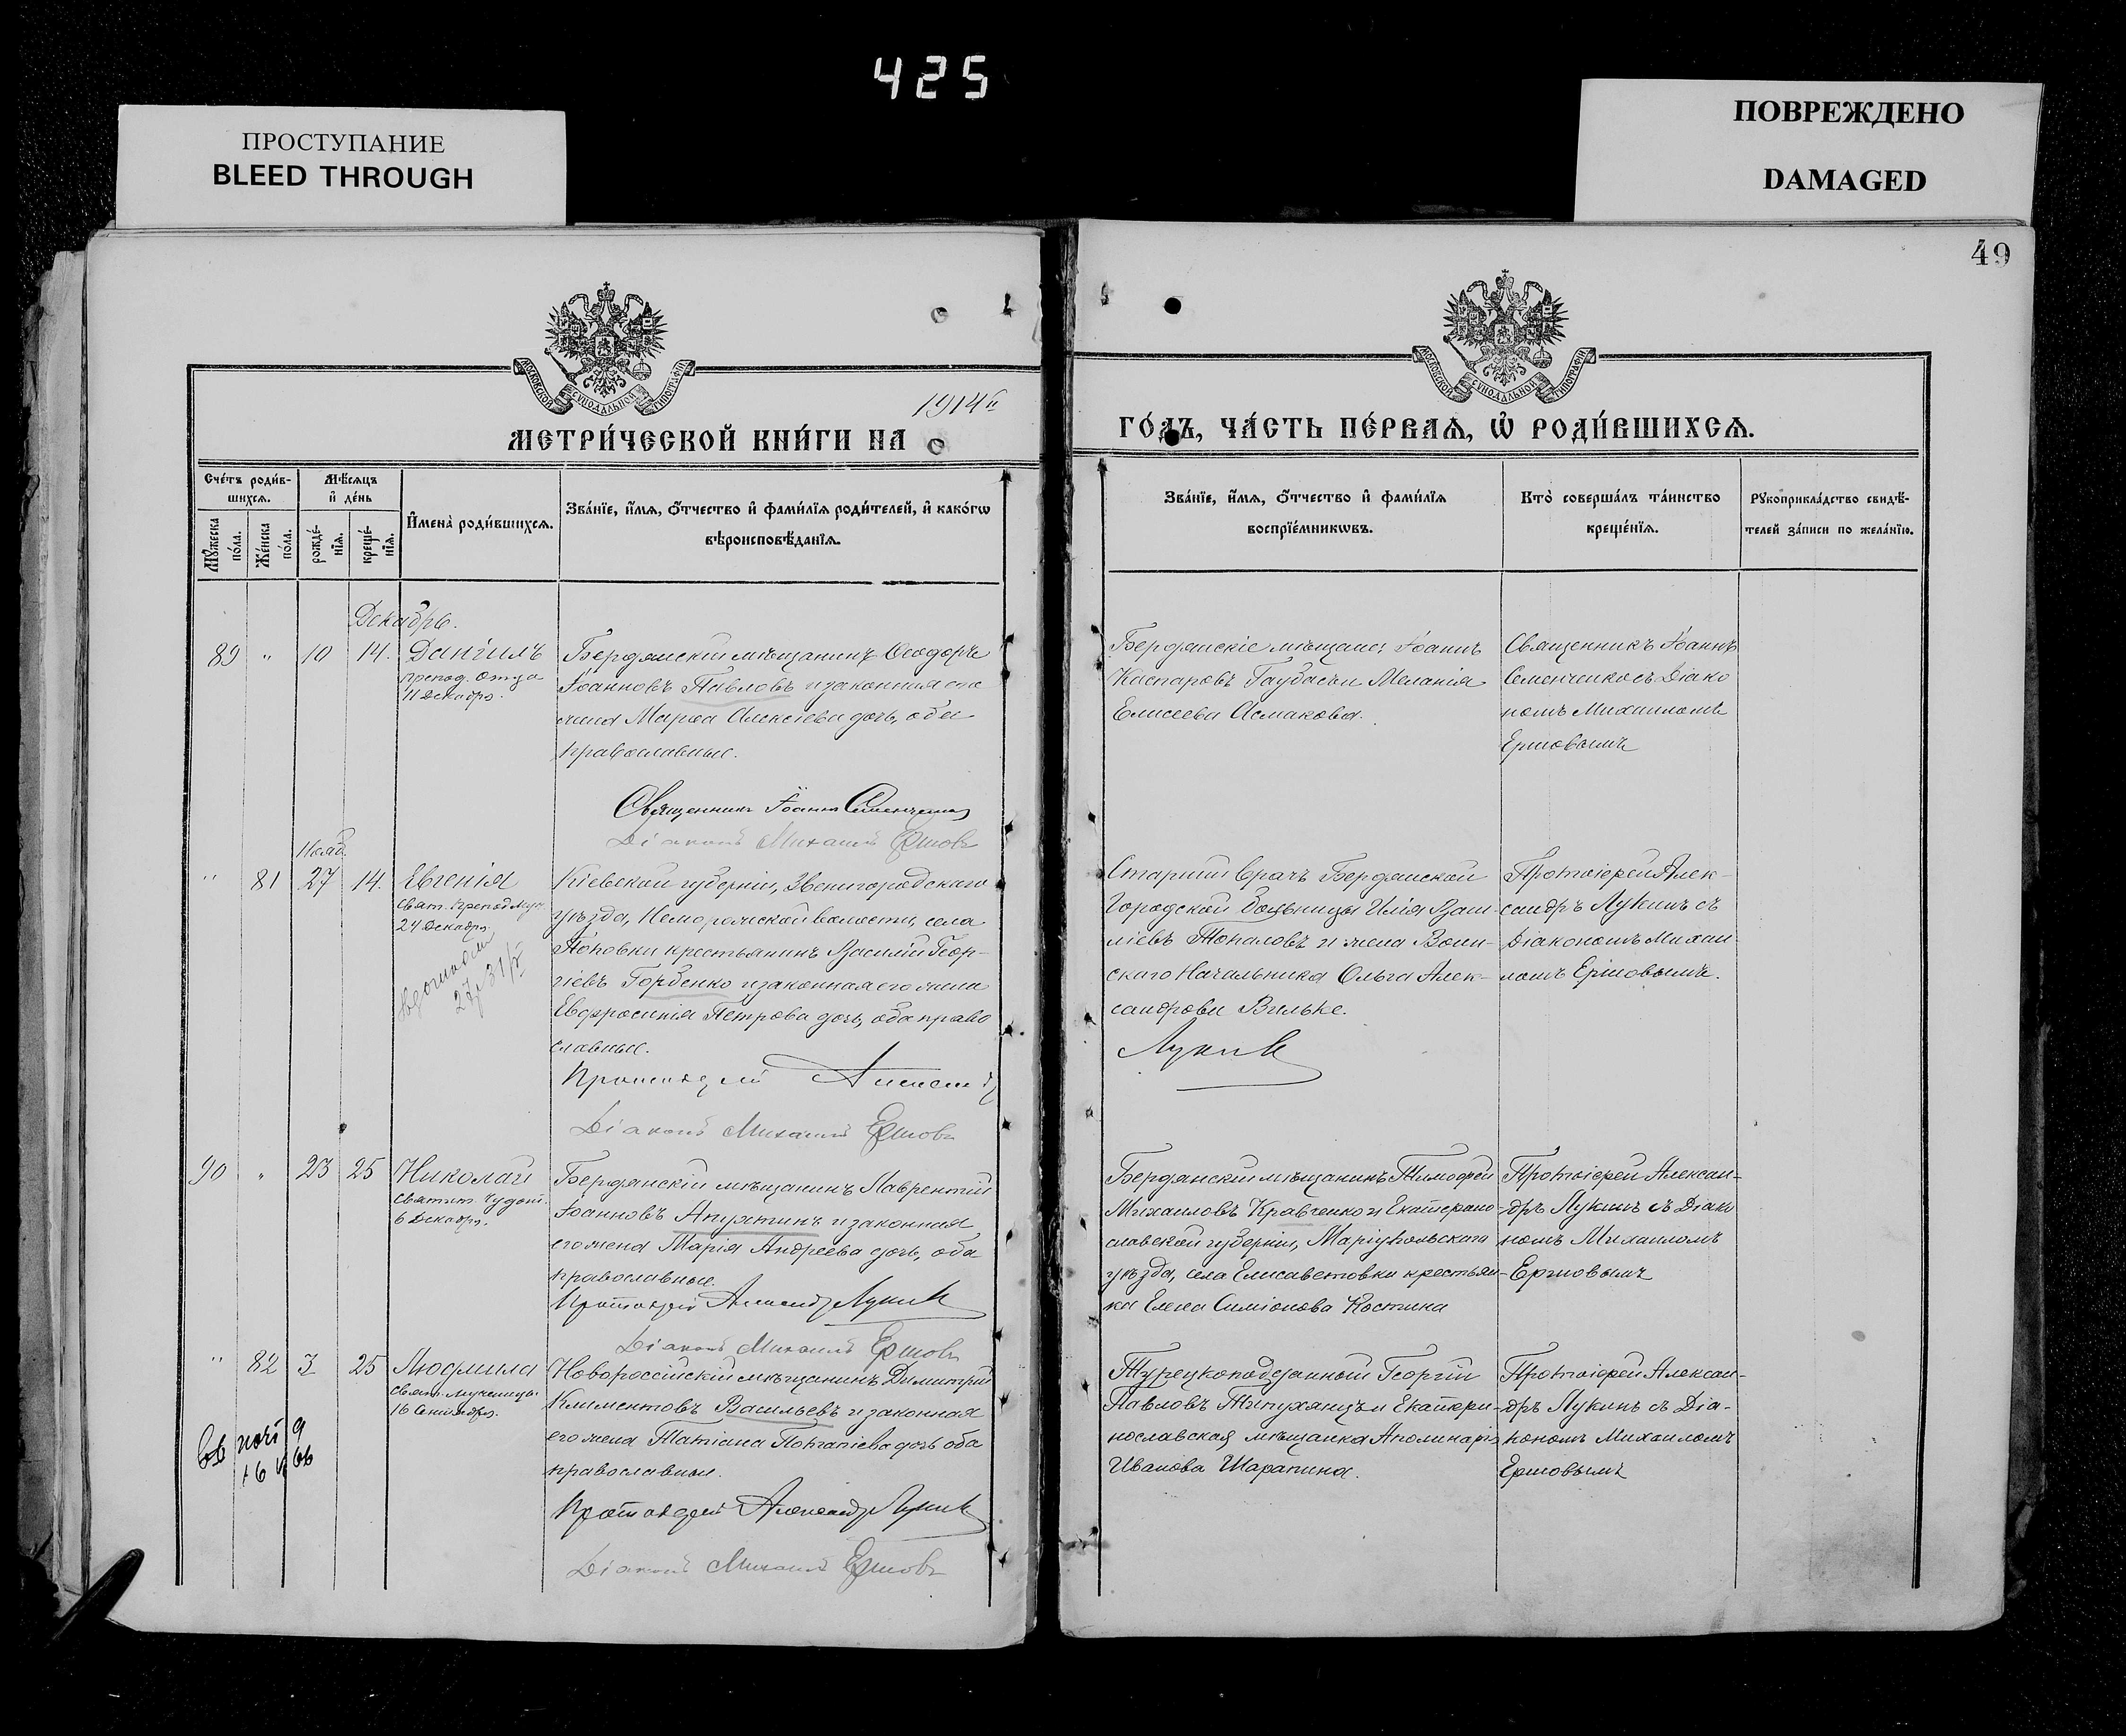 425
ПРОСТУПАНИЕ
BLEED THROUGH
ПОВРЕЖДЕНО
DAMAGED
49
МОСКОВСКОЙ СУНОДАЛЬНОЙ ТИПОГРАФІИ
МОСКОВСКОЙ СУНОДАЛЬНОЙ ТИПОГРАФІИ
1914й
МЕТРИ́ЧЕСКОЙ КНИ́ГИ НА
ГО́ДЪ, ЧА́СТЬ ПЕ́РВАѦ, Ѡ҆ РОДИ́ВШИХСѦ.
Сче́тъ роди́в-
шихсѧ.
Мꙋ́жеска
по́ла.
Же́нска
по́ла.
Мѣ́сѧцъ
и҆ де́нь
рожде́-
нїѧ.
креще́-
нїѧ.
И҆мена̀ роди́вшихсѧ.
Зва́нїе, и҆́мѧ, ѻ҆́тчество и҆ фами́лїѧ роди́телей, и҆ како́гѡ
вѣроисповѣ́данїѧ.
Зва́нїе, и҆́мѧ, ѻ҆́тчество и҆ фами́лїѧ
воспрїе́мникѡвъ.
Кто̀ соверша́лъ та́инство
креще́нїѧ.
Рꙋкоприкла́дство свидѣ́-
телей за́писи по жела́нїю.
Декабрь.
89 " 10 14. Даніилъ
препод. Отца
11 Декабря.
Бердянскій мѣщанинъ Ѳеодоръ
Іоанновъ Павловъ и законная его
жена Марѳа Алексіева дочь, оба
православные.
Священникъ Іоаннъ Семенченко
Діаконъ Михаилъ Ершовъ
Бердянскіе мѣщане: Іоаннъ
Каспаровъ Таубасъ и Меланія
Елисеева Асмакова.
Священникъ Іоаннъ
Семенченко съ Діако
номъ Михаиломъ
Ершовымъ
Нояб.
" 81 27 14. Евгенія
Свят. Препод Муч.
24 Декабря.
27 31/5
Кіевской губерніи, Звенигородскаго
уѣзда, волости, села
Поповки крестьянинъ Василій Геор-
гіевъ Горбенко и законная его жена
Евфросинія Петрова дочь, оба право
славные.
Протоіерей Александръ
Діаконъ Михаилъ Ершовъ
Старшій врачъ Бердянской
Городской больницы Илія Васи-
ліевъ Топаловъ и жена Воин-
скаго Начальника Ольга Алек-
сандрова Вильке.
Лукинъ
Протоіерей Алек-
сандръ Лукинъ съ
Діакономъ Михаи
ломъ Ершовымъ.
90 " 23 25 Николай
Святит. Чудот.
6 Декабря.
Бердянскій мѣщанинъ Лаврентій
Іоанновъ Апухтинъ и законная
его жена Марія Андреева дочь, оба
православные.
Протоіерей Александръ Лукинъ
Діаконъ Михаилъ Ершовъ
Бердянскій мѣщанинъ Тимофей
Михаиловъ Кравченко и Екатерино-
славской губерніи, Маріупольскаго
уѣзда, села Елисаветовки крестьян-
ка Елена Симіонова Костина
Протоіерей Алексан-
дръ Лукинъ съ Діако
номъ Михаиломъ
Ершовымъ
" 82 3 25 Людмила
Свят. Мученицы
16 Сентября.
Новороссійскій мѣщанинъ Димитрій
Климентовъ Васильевъ и законная
его жена Татіана Потапіева дочь оба
православные.
Протоіерей Александръ Лукинъ
Діаконъ Михаилъ Ершовъ
Турецкоподданный Георгій
Павловъ и Екатери-
нославская мѣщанка Аполинарія
Иванова Шарапина.
Протоіерей Алексан-
дръ Лукинъ съ Діа-
кономъ Михаиломъ
Ершовымъ